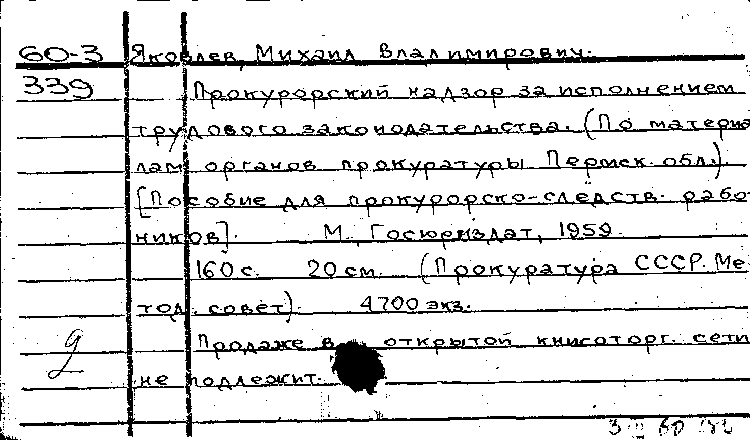 60-3 Яковлев, Михаил Владимирович.
339 Прокурорский надзор за исполнением
трудового законодательства. (По материа-
лам органов прокуратуры Пермск. обл.)
[Пособие для прокурорско-следств. работ-
ников]. М., Госюриздат, 1959.
160 с. 20 см. (Прокуратура СССР. Ме-
тод. совет). 4700 экз.
Продаже в открытой книготорг. сети
не подлежит.